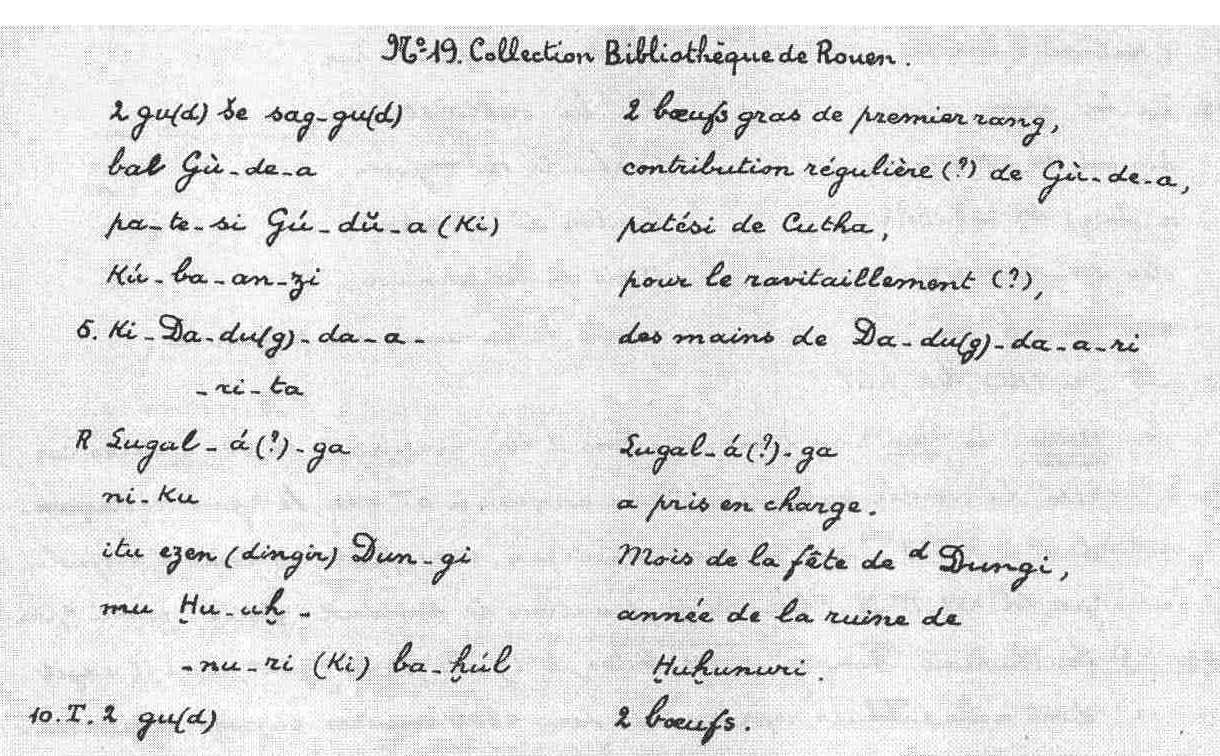 Nº 19. Collection Bibliothèque de Rouen.
2 gu(d) še sag-gu(d) 2 bœufs gras de premier rang,
bal Gù-de-a contribution régulière (?) de Gù-de-a,
pa-te-si Gú-dŭ-a (Ki) patési de Cutha,
Kú-ba-an-zi pour le ravitaillement (?),
5. Ki-Da-du(g)-da-a- des mains de Da-du(g)-da-a-ri
-ri-ta
R Lugal-á(?)-ga Lugal-á(?)-ga
ni-Ku a pris en charge.
itu ezen (dingir) Dun-gi Mois de la fête de d Dungi,
mu Ḫu-uḫ- année de la ruine de
-nu-ri (Ki) ba-ḫúl Ḫuḫunuri.
10. T. 2 gu(d) 2 bœufs.